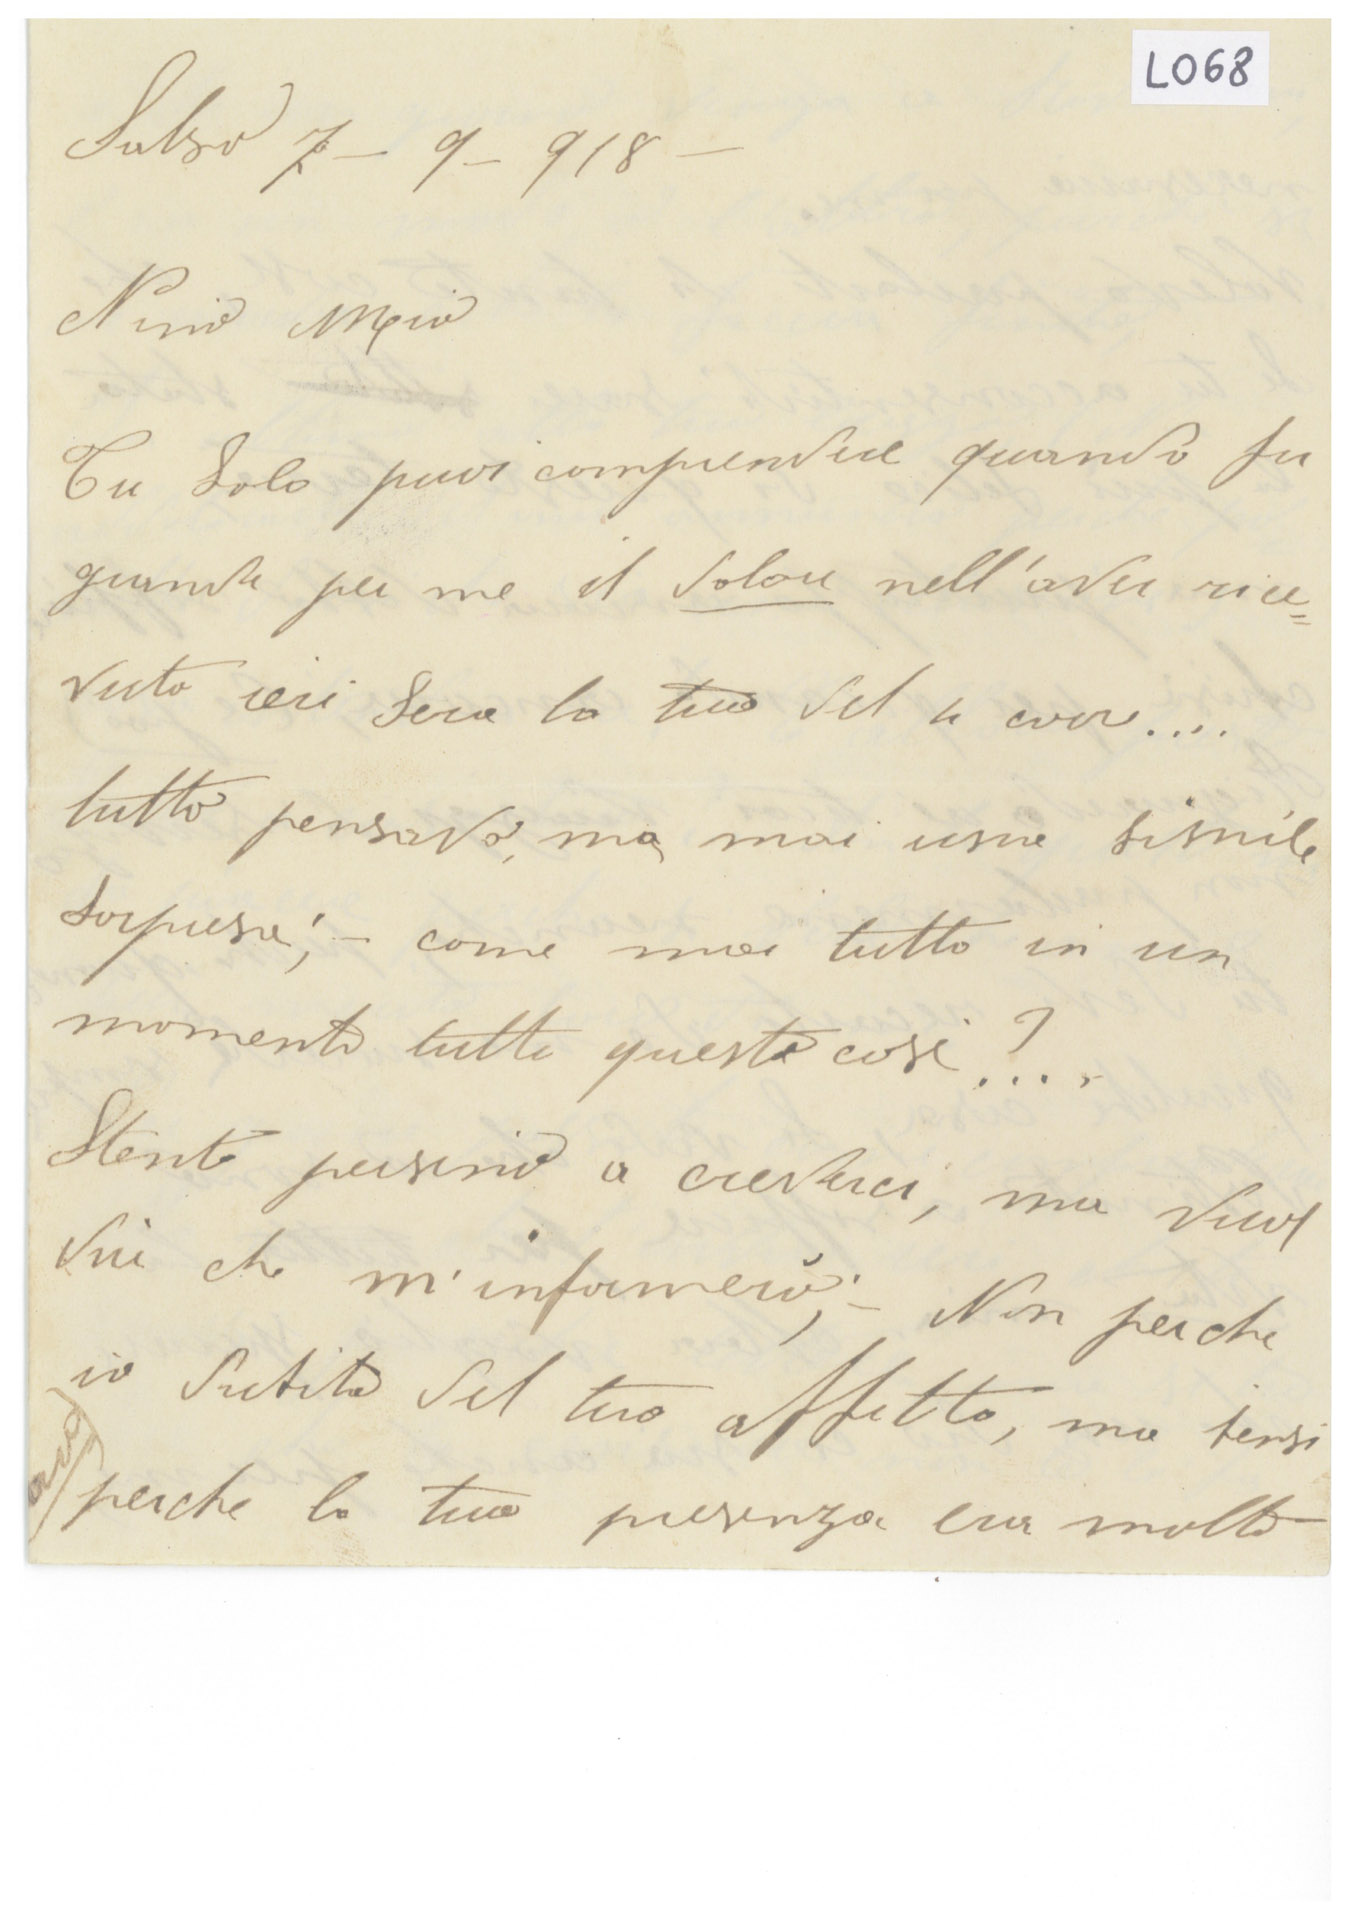 L068
Salso 7 - 9 - 918 -
Nino Mio
Tu Solo puoi comprendere quando fu
grande per me il dolore nell'aver rice=
vuto ieri Sera la tua del u corr....
tutto pensavo, ma, mai una simile
Sorpresa; - come mai tutto in un
momento tutte queste cose?....
Stento persino a crederci, ma vuol
dire che m'informerò; - Non perche
io dubito del tuo affetto, ma bensi
perche la tua presenza era molto